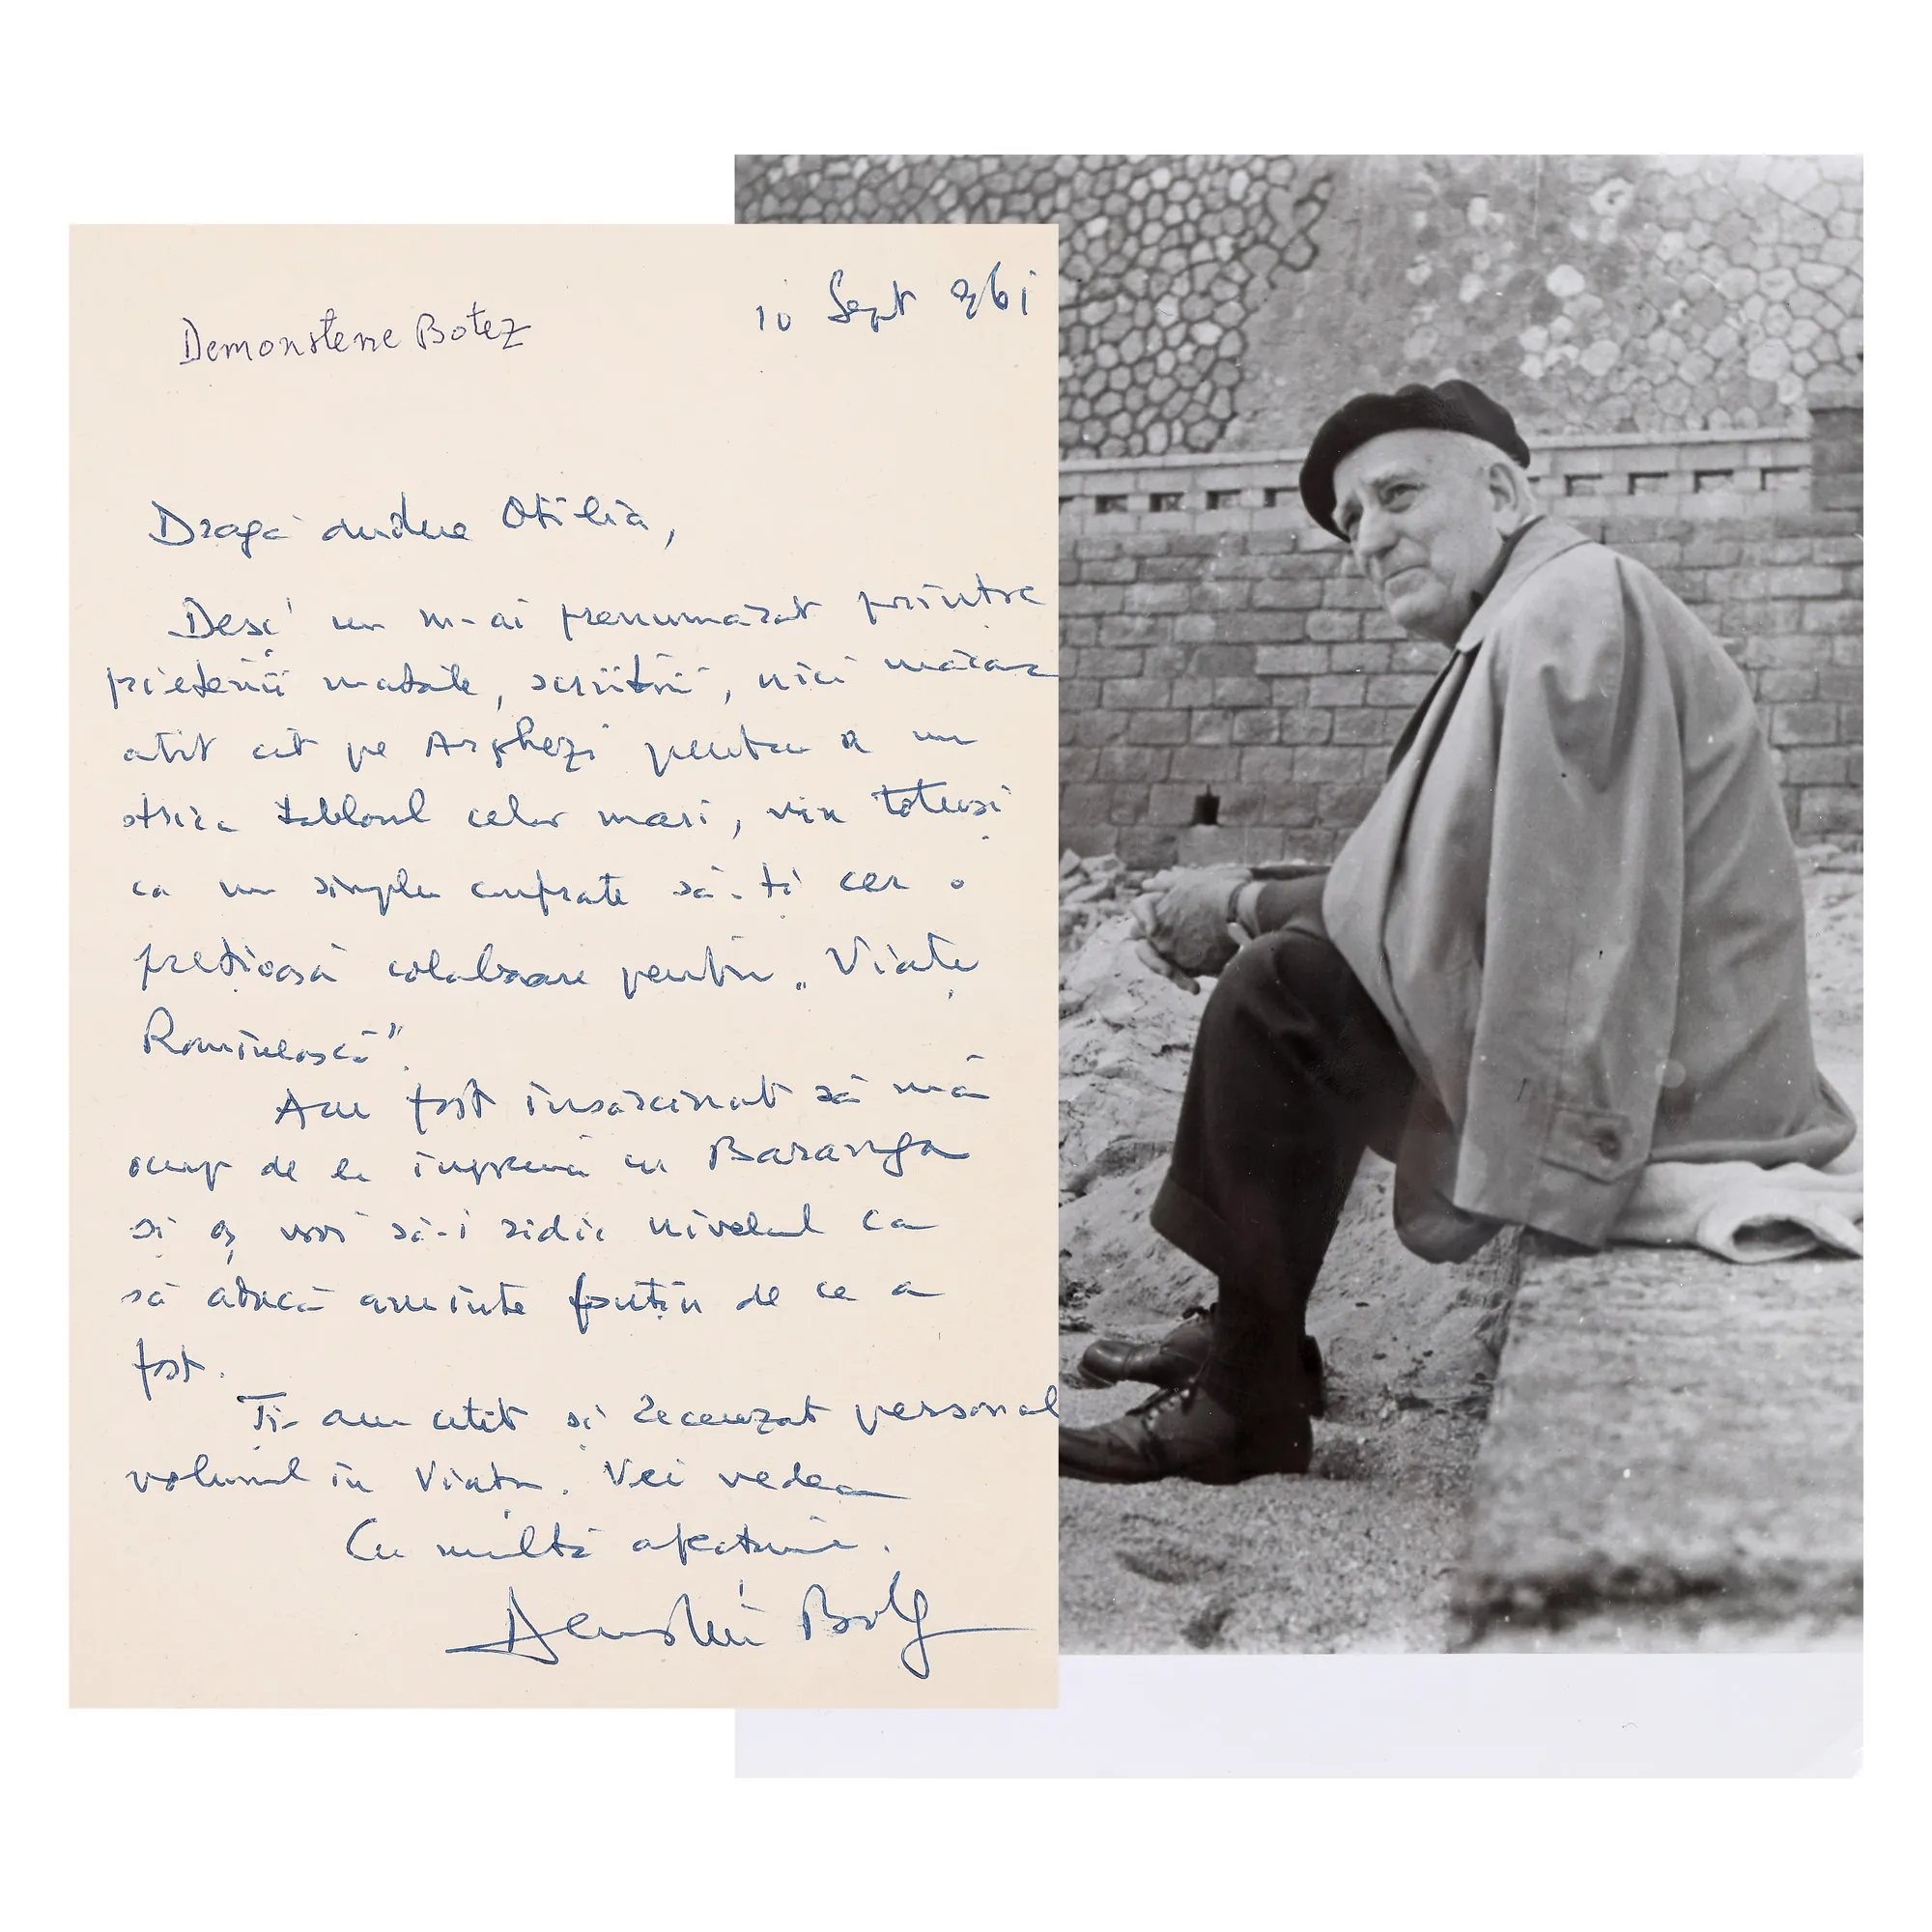 Demonstene Botez
10 Sept 961
Dragă Otilia,
Deși nu m-ai prenumărat printre
prietenii matale, scriitori, nici măcar
atît cît pe Arghezi pentru a nu
strica tabloul celor mari, vin totuși
ca un simplu confrate să-ți cer o
prețioasă colaborare pentru „Viața
Romînească".
Am fost însărcinat să mă
ocup de ea împreună cu Baranga
și aș vroi să-i ridic nivelul ca
să aducă aminte puțin de ce a
fost.
Ți-am citit și recenzat personal
volumul în Viața. Vei vedea
Cu multă afecțiune.
Demostene Botez